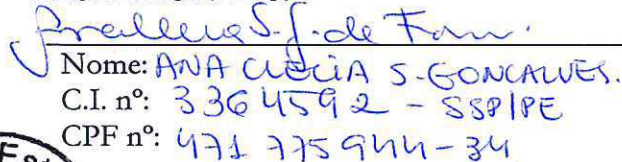 S. G. de
Nome: ANA CLÉCIA S. GONCALVES.
C.I. nº: 3364592 - SSP/PE
CPF nº: 471 775 944-34